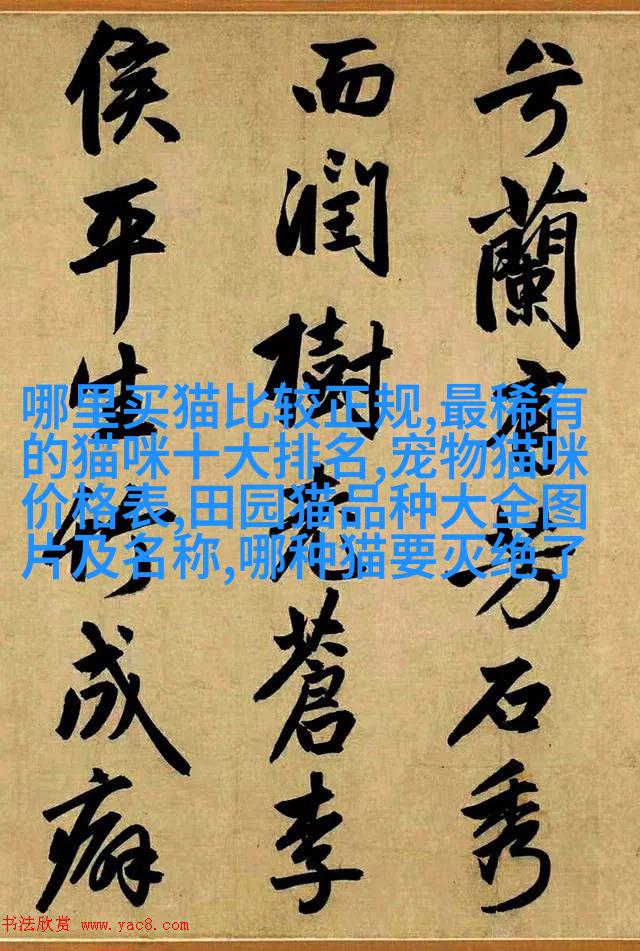 兮蘭有芳石秀
而潤樹蒼李
侯平生竹成癖
哪里买猫比较正规,最稀有
的猫咪十大排名,宠物猫咪
价格表,田园猫品种大全图
片及名称,哪种猫要灭绝了
书法欣赏 www.yac8.com